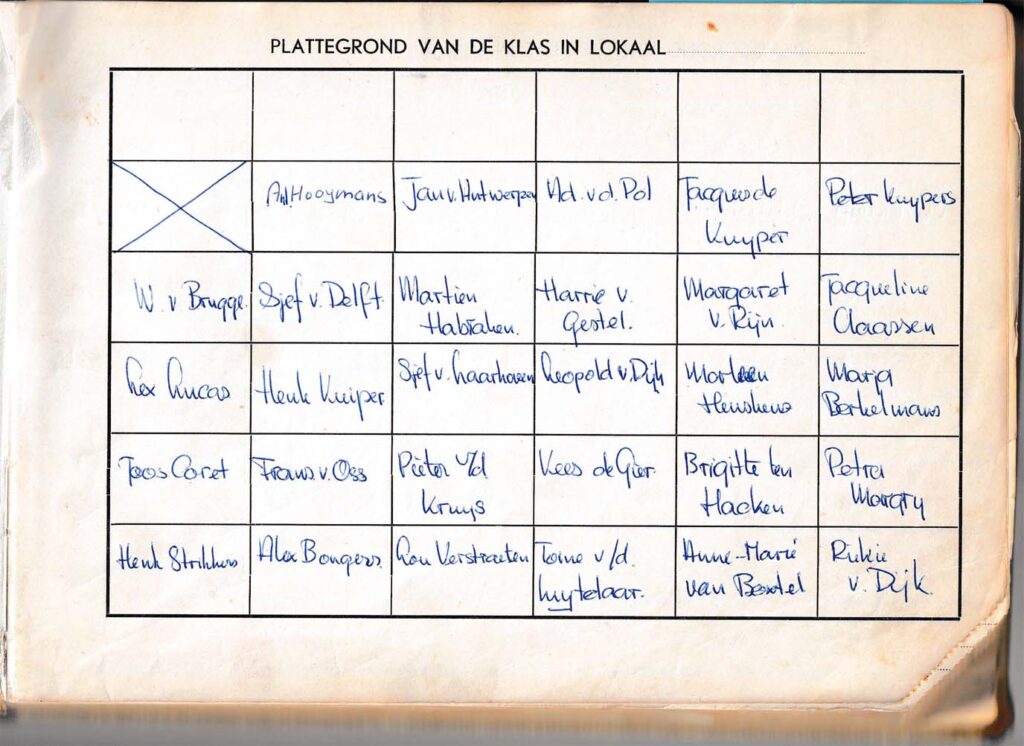 PLATTEGROND VAN DE KLAS IN LOKAAL
Hooymans
Jan v. Antwerpen
Ad. v.d. Pol
Jacques de
Kuyper
Peter Kuypers
W. v Brugge.
Sjef v. Delft.
Martien
Habraken.
Harrie v.
Gestel.
Margaret
v. Rijn.
Jacqueline
Claassen
Lex Lucas
Henk Kuiper
Sjef v. Laarhoven
Leopold v. Dijk
Marleen
Henskens
Marja
Berkelmans
Joos Coret
Frans v. Oss
Pieter v/d
Kruys
Kees de Gier.
Brigitte ten
Hacken
Petra
Margry
Henk Strikkers
Alex Bongers.
Ron Verstraeten
Toine v/d.
Luytelaar.
Anne-Marie
van Boxtel
Rikie
v. Dijk.